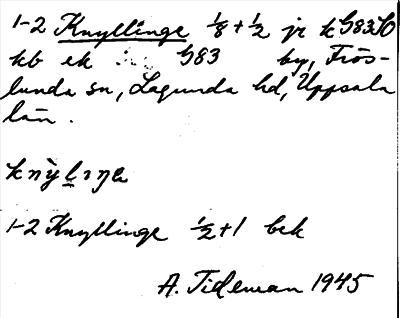 1-2 Knyllinge 1/8 + 1/2 jr k G83 10
kb ek G83 by, Frös-
lunda sn, Lagunda hd, Uppsala
län.
knỳlıŋe
1-2 Knyllinge 1/2 + 1 bek
A. Tideman 1945